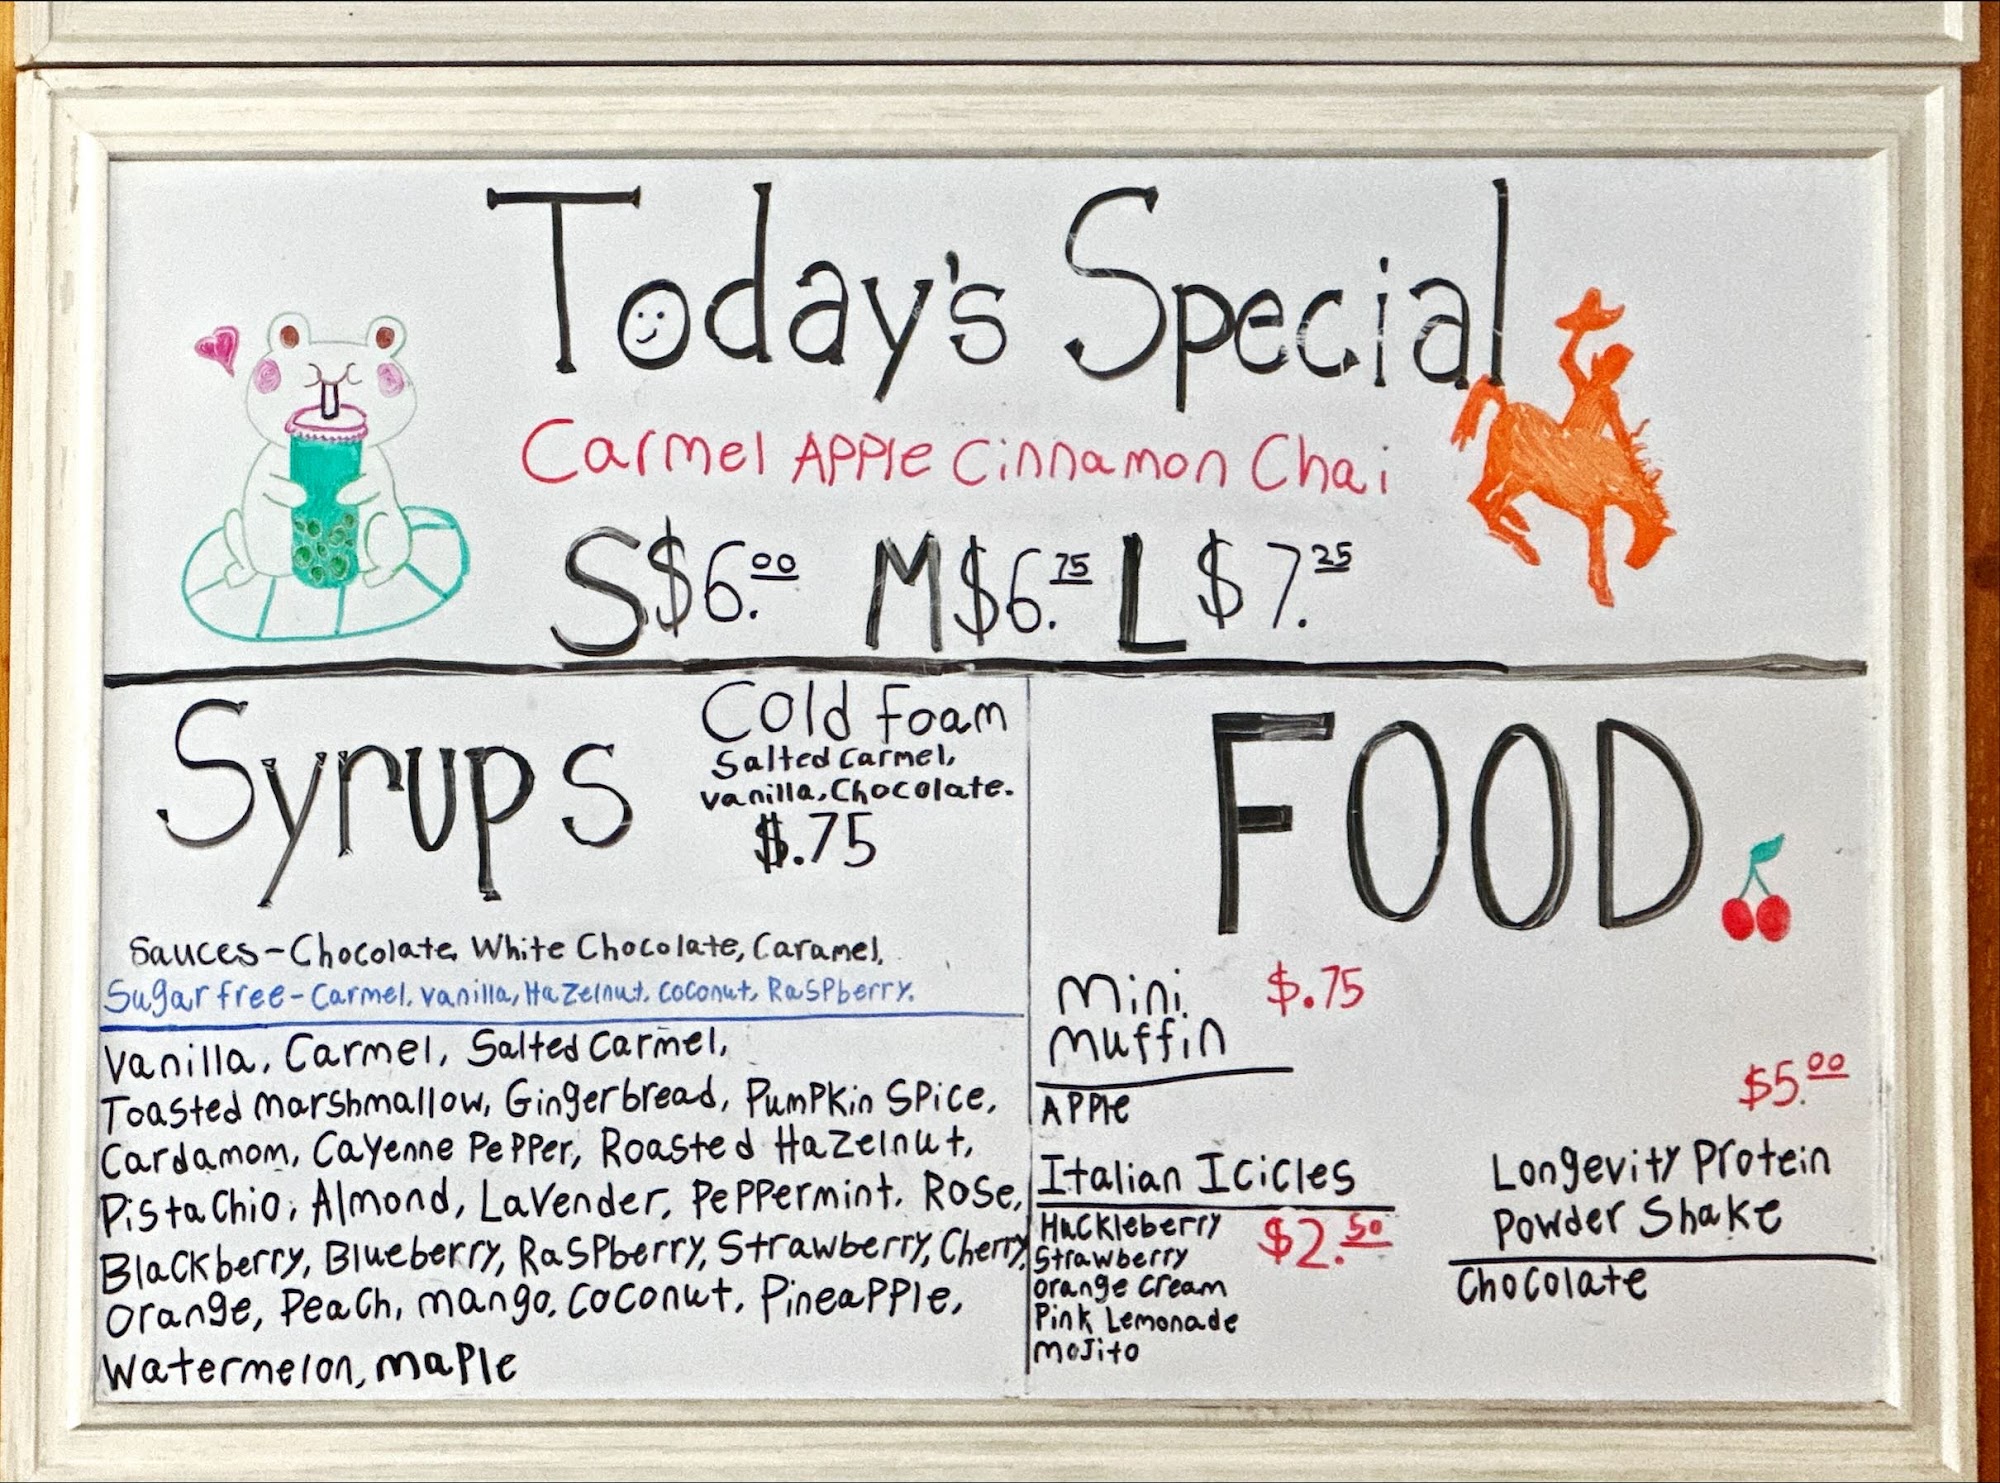 Today's Special
Carmel Apple Cinnamon Chai
S $6.00 M $6.75 L $7.25
Syrups
Cold foam
Salted Carmel,
Vanilla, Chocolate.
$.75
Sauces - Chocolate, White Chocolate, Caramel,
Sugar free - Carmel, Vanilla, Hazelnut, Coconut, Raspberry.
Vanilla, Carmel, Salted Carmel,
Toasted marshmallow, Gingerbread, Pumpkin Spice,
Cardamom, Cayenne Pepper, Roasted Hazelnut,
Pistachio, Almond, Lavender, Peppermint, Rose,
Blackberry, Blueberry, Raspberry, Strawberry, Cherry,
Orange, Peach, Mango, Coconut, Pineapple,
Watermelon, Maple
FOOD
Mini $.75
Muffin
Apple
Italian Icicles
Huckleberry $2.50
Strawberry
Orange Cream
Pink Lemonade
Mojito
$5.00
Longevity Protein
Powder Shake
Chocolate